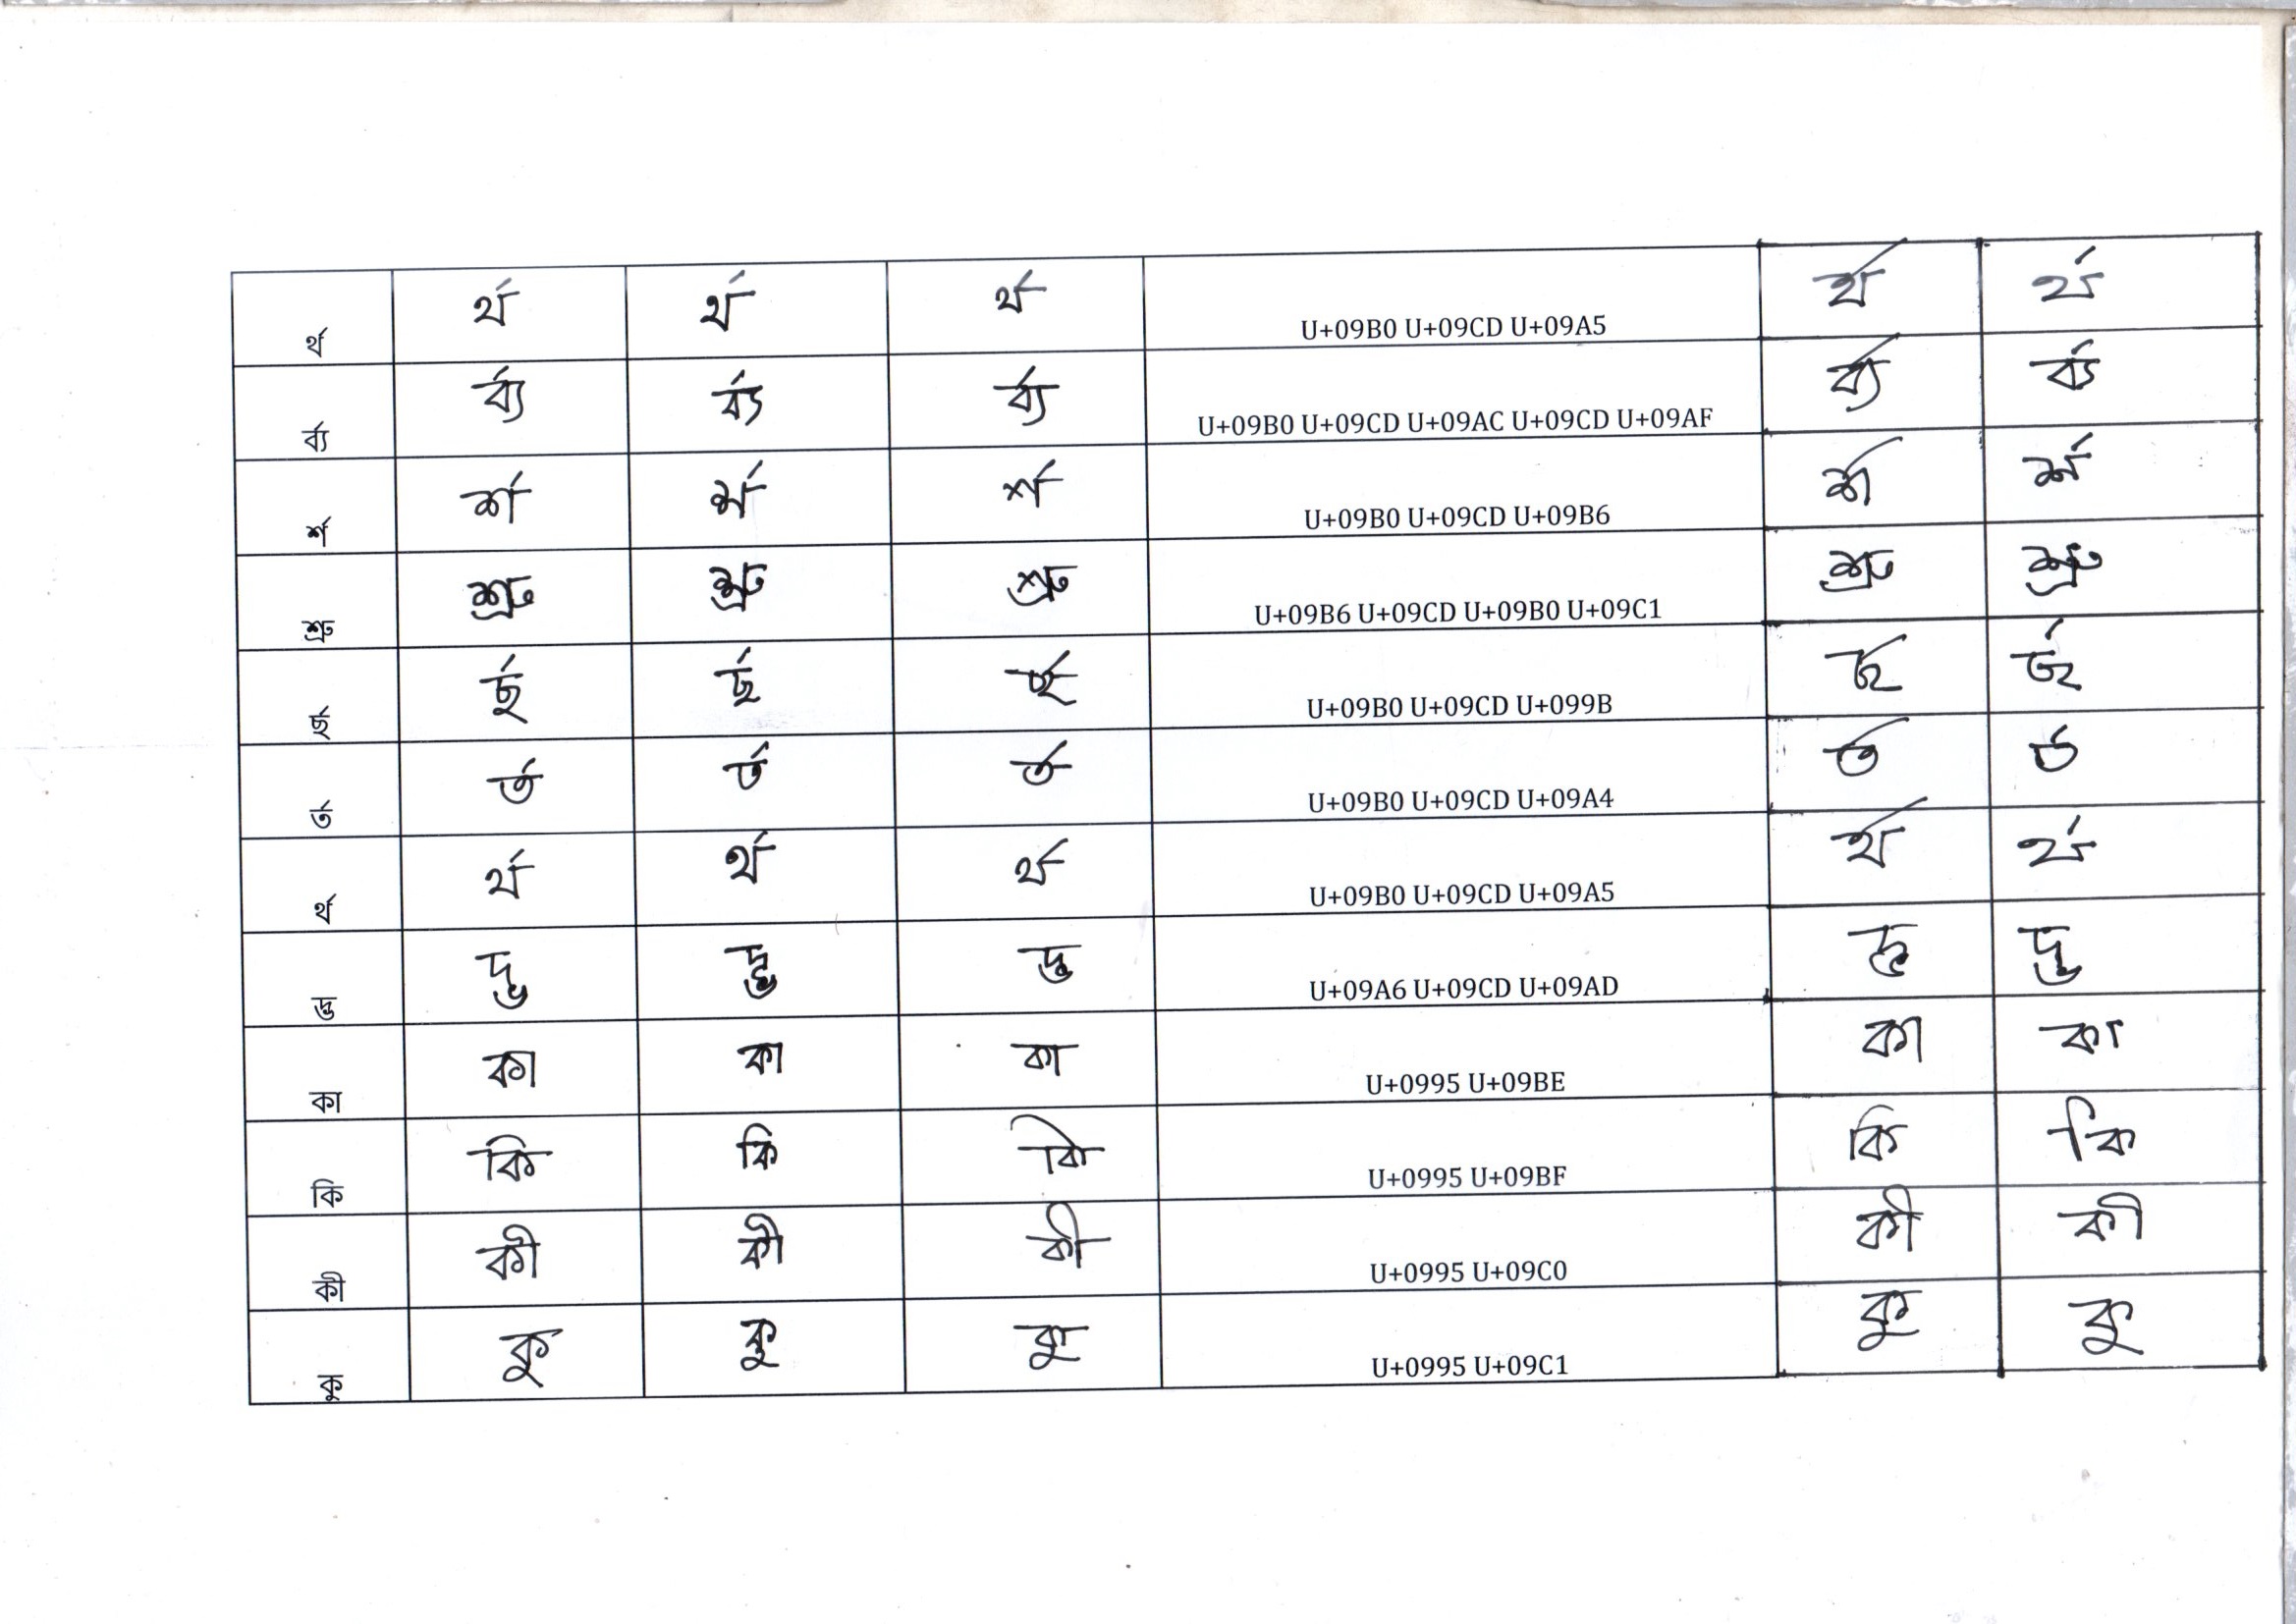 র্থ র্থ র্থ র্থ U+09B0 U+09CD U+09A5 র্থ র্থ
র্ব্য র্ব্য র্ব্য র্ব্য U+09B0 U+09CD U+09AC U+09CD U+09AF র্ব্য র্ব্য
র্শ র্শ র্শ র্শ U+09B0 U+09CD U+09B6 র্শ র্শ
শ্রু শ্রু শ্রু শ্রু U+09B6 U+09CD U+09B0 U+09C1 শ্রু শ্রু
র্ছ র্ছ র্ছ র্ছ U+09B0 U+09CD U+099B র্ছ র্ছ
র্ত র্ত র্ত র্ত U+09B0 U+09CD U+09A4 র্ত র্ত
র্থ র্থ র্থ র্থ U+09B0 U+09CD U+09A5 র্থ র্থ
দ্ভ দ্ভ দ্ভ দ্ভ U+09A6 U+09CD U+09AD দ্ভ দ্ভ
কা কা কা কা U+0995 U+09BE কা কা
কি কি কি কি U+0995 U+09BF কি কি
কী কী কী কী U+0995 U+09C0 কী কী
কু কু কু কু U+0995 U+09C1 কু কু